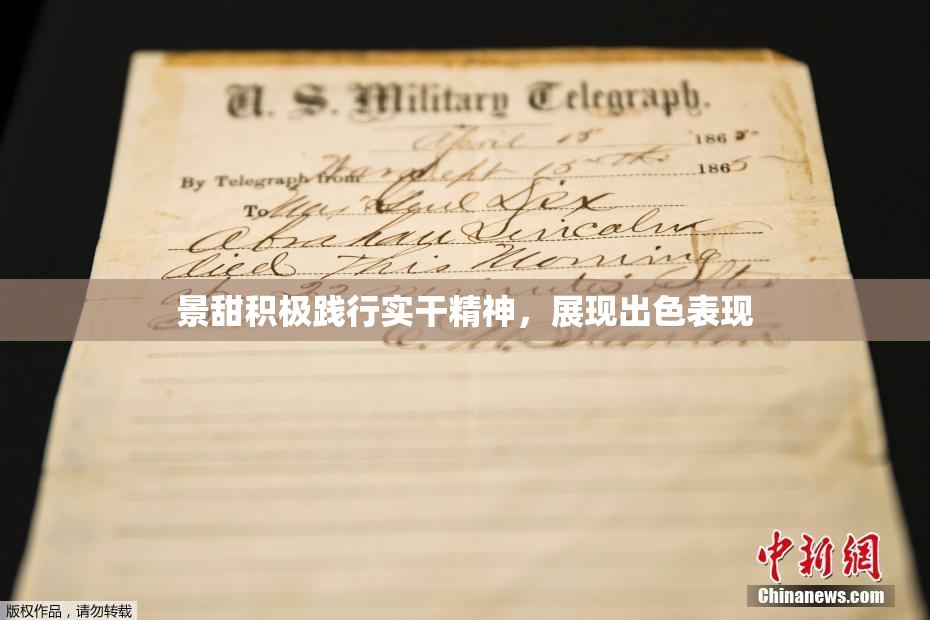 U. S. Military Telegraph.
April 15 1865
By Telegraph from War Dept 15th 1865
To Maj Genl Dix
Abraham Lincoln
died This Morning
at 22 minutes after
景甜积极践行实干精神，展现出色表现
E. M. Stanton
中新網
Chinanews.com
版权作品，请勿转载